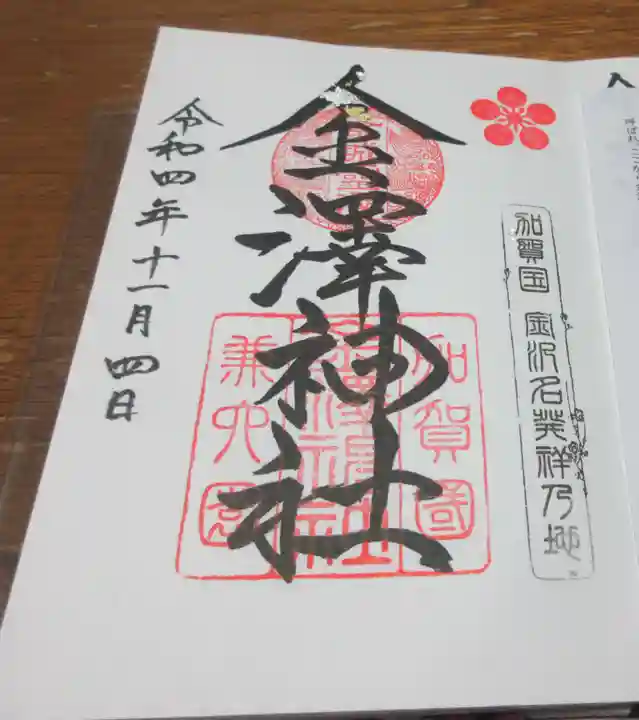 加賀国 金沢名発祥乃地
金澤神社
加賀國
金澤神社
兼六園
令和四年十一月四日